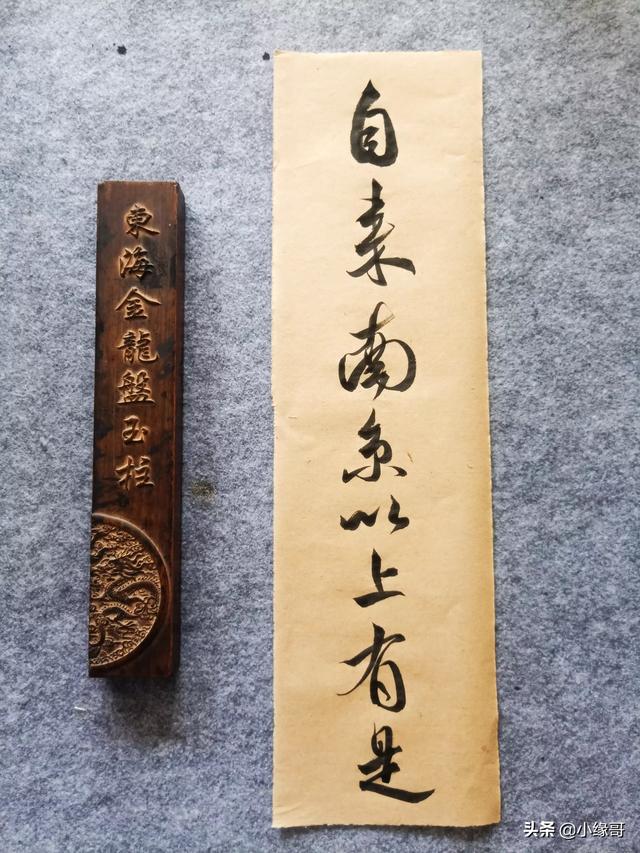 自来南京以上有是
東海金龍盤玉柱
头条 @小缘哥